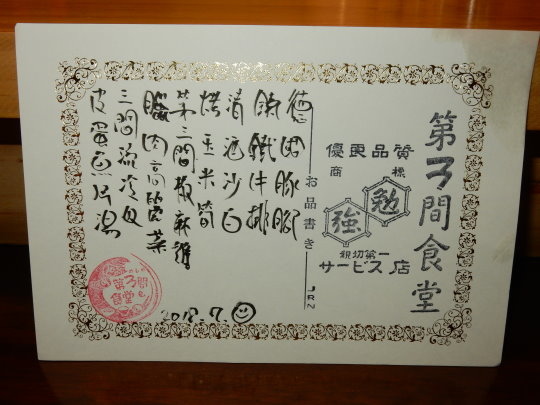 第3間食堂
優良品質
商標
勉強
親切第一
サービス店
お品書き
德國豚腳
鐵牛排
清酒沙白
烤玉米筍
第三間椒麻雞
臘肉高麗菜
三間流冷白
皮蛋魚片湯
第3間
食堂
2018.7.